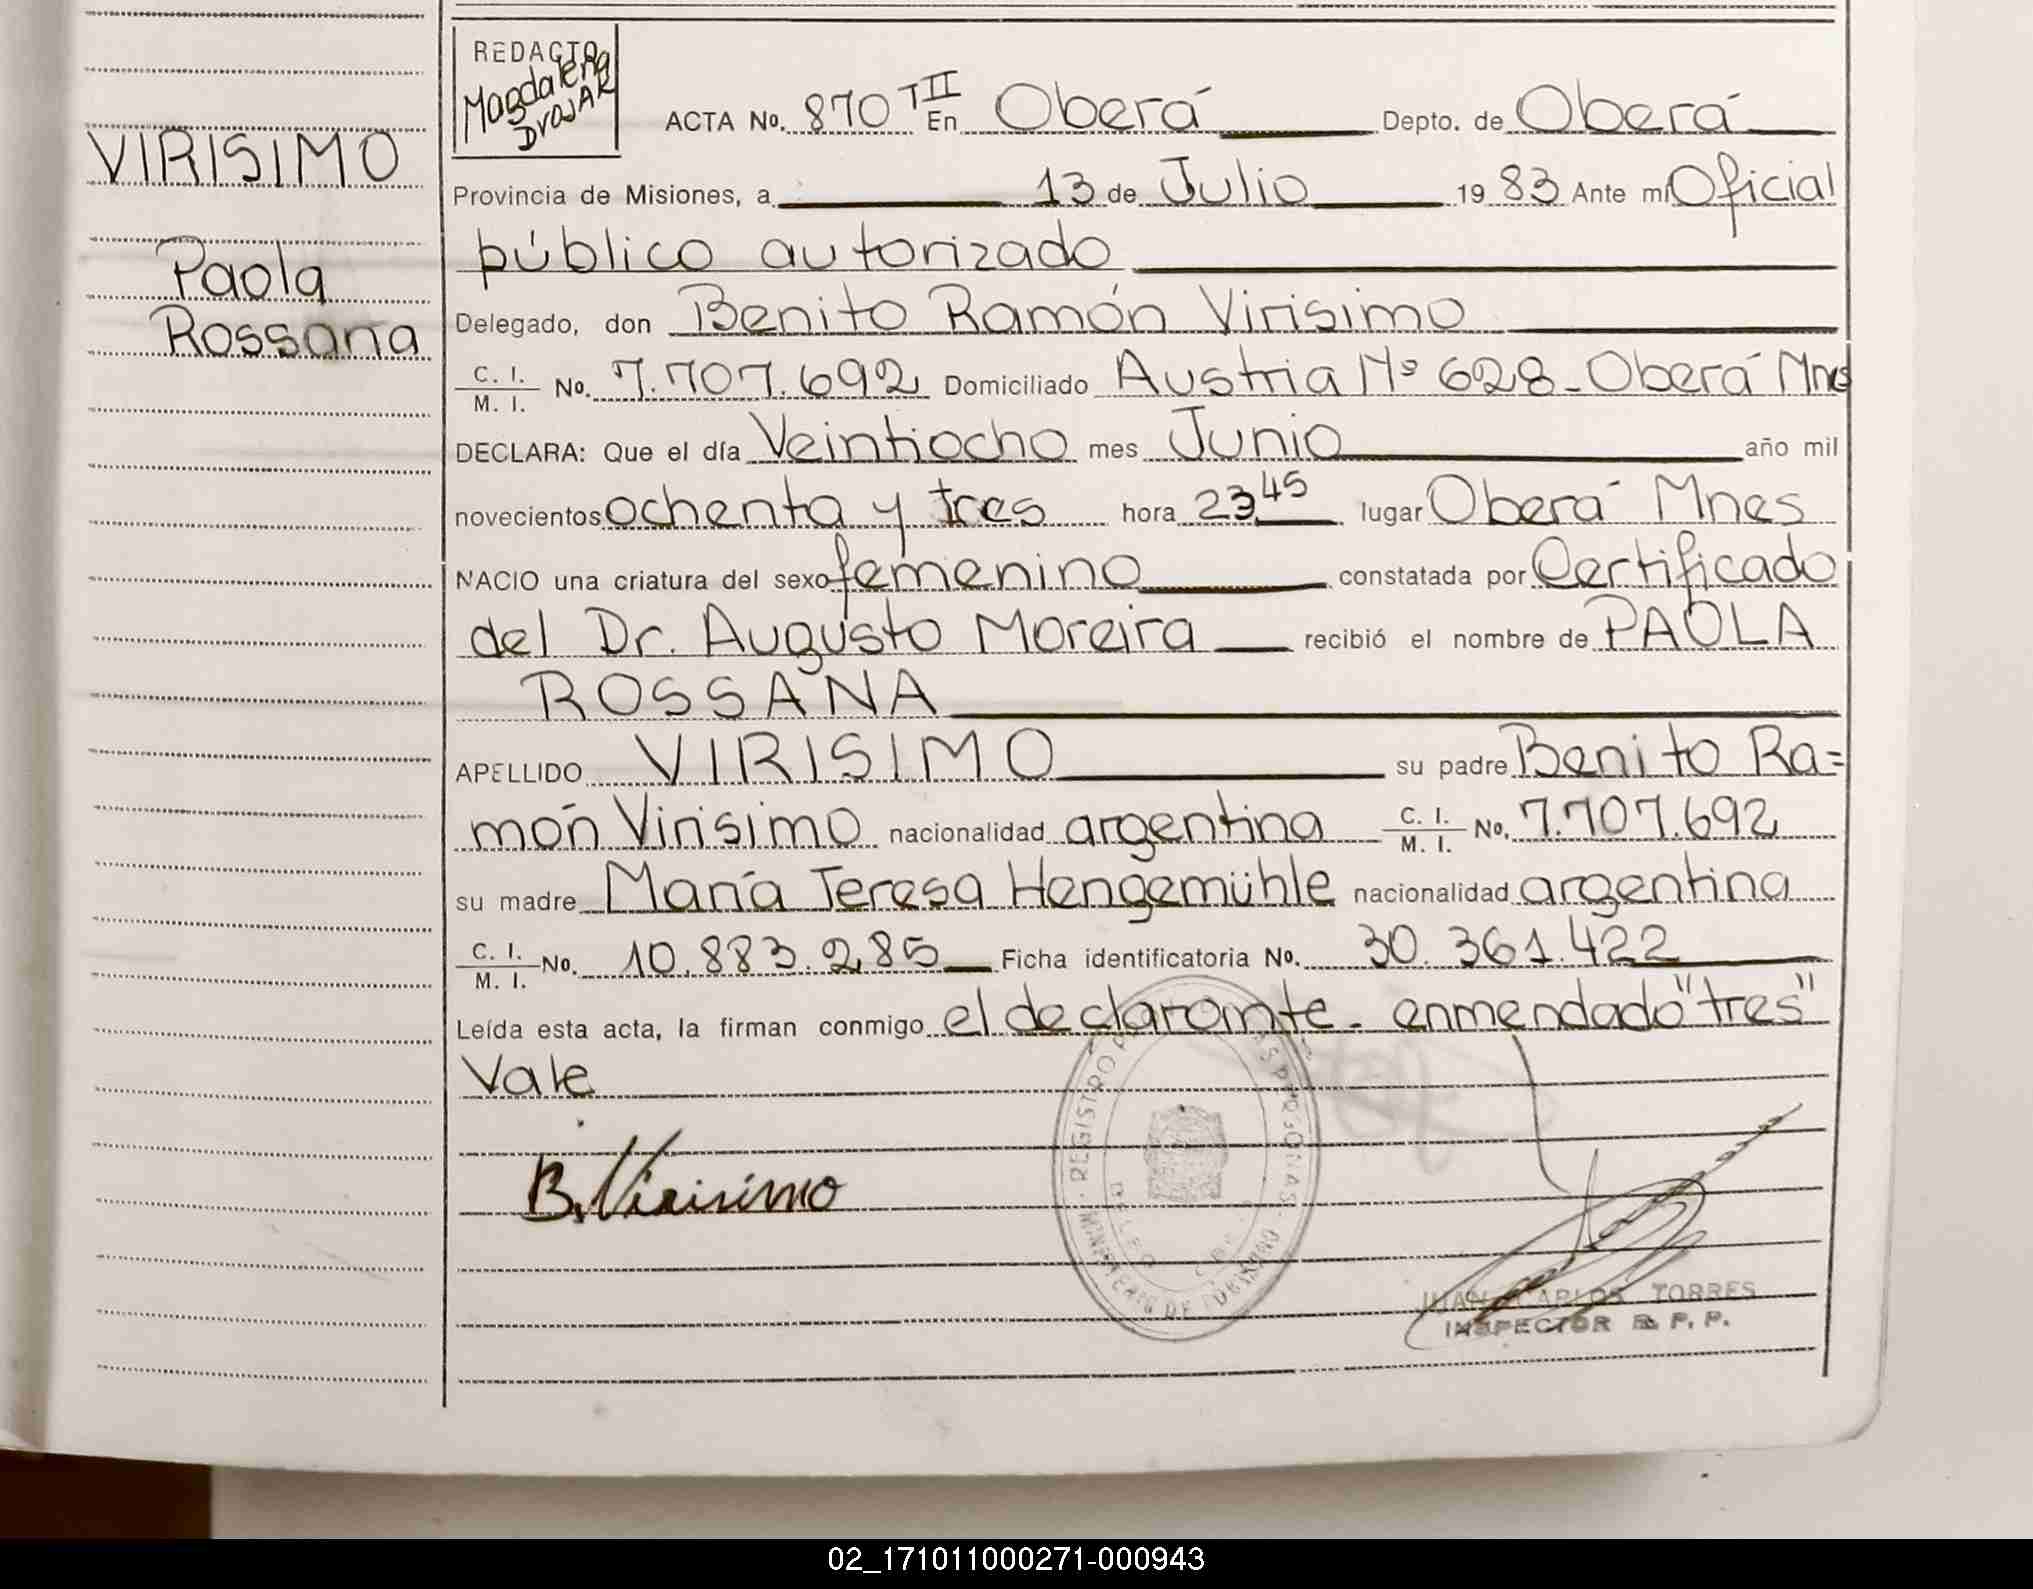 VIRISIMO
Paola
Rossana
REDACTO
Magdalena
DrojAK
ACTA No. 870 T II En Oberá Depto. de Oberá
Provincia de Misiones, a 13 de Julio 19 83 Ante mí Oficial
público autorizado
Delegado, don Benito Ramón Virisimo
C. I. / M. I. No. 7.707.692 Domiciliado Austria Nº 628 - Oberá Mnes
DECLARA: Que el día Veintiocho mes Junio año mil
novecientos ochenta y tres hora 23 45 lugar Oberá Mnes
NACIO una criatura del sexo femenino constatada por Certificado
del Dr. Augusto Moreira recibió el nombre de PAOLA
ROSSANA
APELLIDO VIRISIMO su padre Benito Ra=
món Virisimo nacionalidad argentina C. I. / M. I. No. 7.707.692
su madre María Teresa Hengemühle nacionalidad argentina
C. I. / M. I. No. 10.883.285 Ficha identificatoria No. 30.361.422
Leída esta acta, la firman conmigo el declarante - enmendado "tres"
Vale
B. Virisimo
REGISTRO
MINISTERIO DE GOBIERNO
JUAN CARLOS TORRES
INSPECTOR R. P. P.
02_171011000271-000943